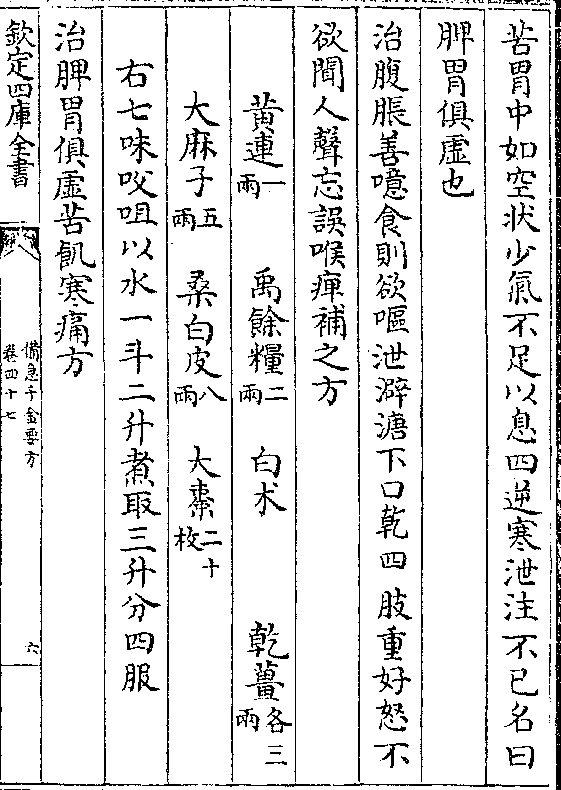 苦胃中如空状少氣不足以息四逆寒泄注不已名曰
脾胃俱虛也
治腹脹善噫食則欲嘔泄澼溏下口乾四肢重好怒不
欲聞人聲忘誤喉痺補之方
黄連一兩 禹餘糧二兩 白术 乾薑各三兩
大麻子五兩 桑白皮八兩 大棗二十枚
右七味㕮咀以水一斗二升煮取三升分四服
治脾胃俱虛苦飢寒痛方
欽定四庫全書
備急千金要方
卷四十七
六